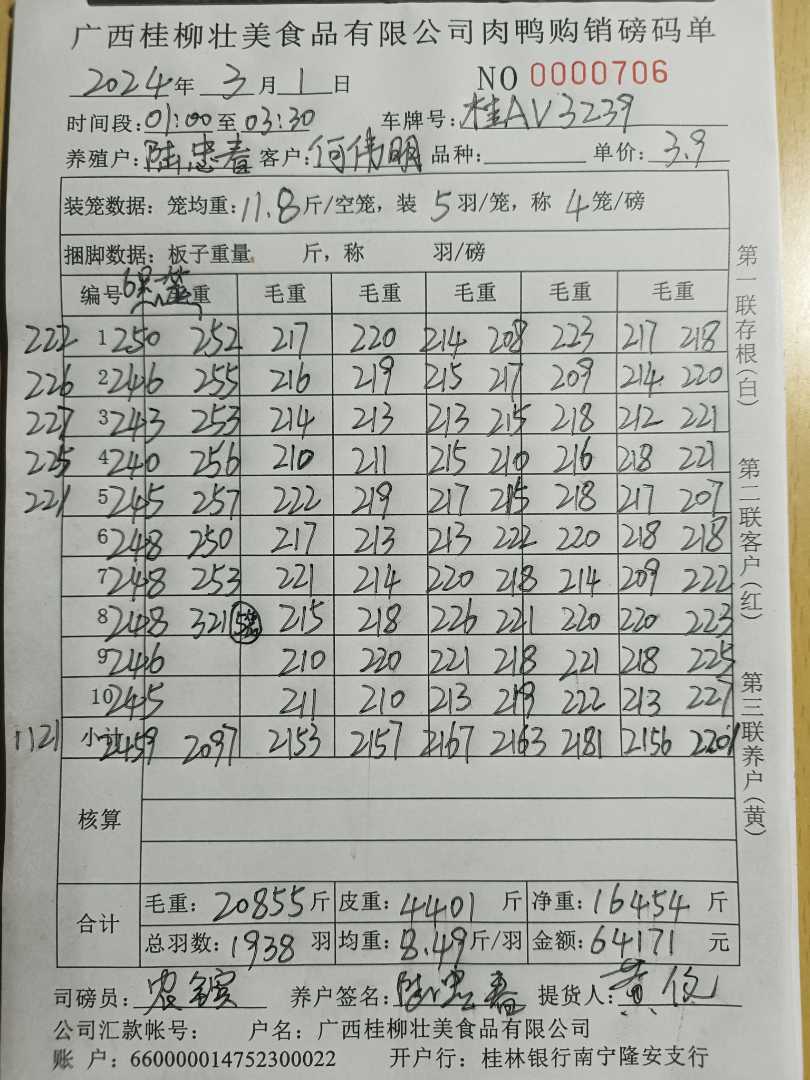 广西桂柳壮美食品有限公司肉鸭购销磅码单
2024年 3月 1日 NO 0000706
时间段: 01:00至 03:30 车牌号: 桂AV3239
养殖户: 陆忠春 客户: 何伟明 品种: 单价: 3.9
装笼数据: 笼均重: 11.8斤/空笼, 装 5羽/笼, 称 4笼/磅
捆脚数据: 板子重量 斤, 称 羽/磅
编号 6只笼 重 毛重 毛重 毛重 毛重 毛重
222 1 250 252 217 220 214 208 223 217 218
226 2 246 255 216 219 215 217 209 214 220
227 3 243 253 214 213 213 215 218 212 221
225 4 240 256 210 211 215 210 216 218 221
221 5 245 257 222 219 217 215 218 217 207
6 248 250 217 213 213 222 220 218 218
7 248 253 221 214 220 218 214 209 222
8 248 321 5笼 215 218 226 221 220 220 223
9 246 210 220 221 218 221 218 225
10 245 211 210 213 219 222 213 227
1121 小计 2459 2097 2153 2157 2167 2163 2181 2156 2201
核算
合计 毛重: 20855斤 皮重: 4401斤 净重: 16454斤
总羽数: 1938羽 均重: 8.49斤/羽 金额: 64171元
司磅员: 农 养户签名: 陆忠春 提货人: 黄
公司汇款帐号: 户名: 广西桂柳壮美食品有限公司
账 户: 660000014752300022 开户行: 桂林银行南宁隆安支行
第一联存根(白) 第二联客户(红) 第三联养户(黄)